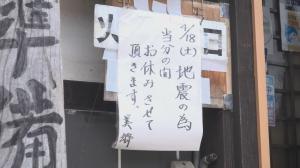 日
火
4/18(土) 地震の為
当分の間
お休みさせて
頂きます。
準備